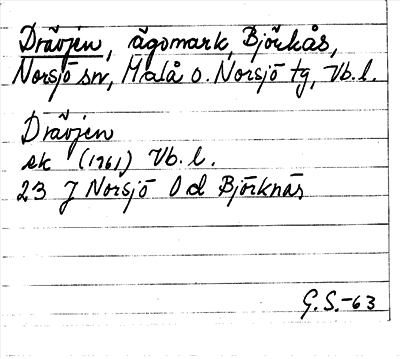 Drävjen, ägomark, Björkås,
Norsjö sn, Malå o. Norsjö tg, Vb. l.
Drävjen
ek (1961) Vb. l.
23 J Norsjö 0d Björknäs
G. S. -63